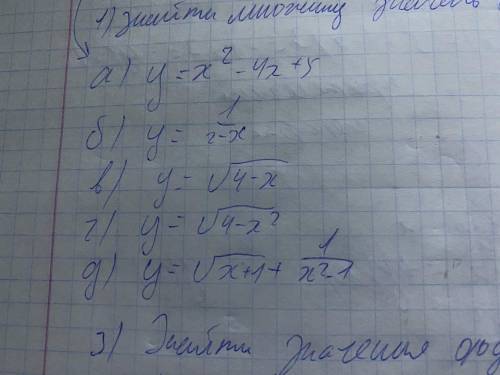 1) Знайти множину значень
а) y = x² - 4x + 5
б) y = 1/(2-x)
в) y = √(4-x)
г) y = √(4-x²)
д) y = √(x+1) + 1/(x²-1)
3) Знайти значення